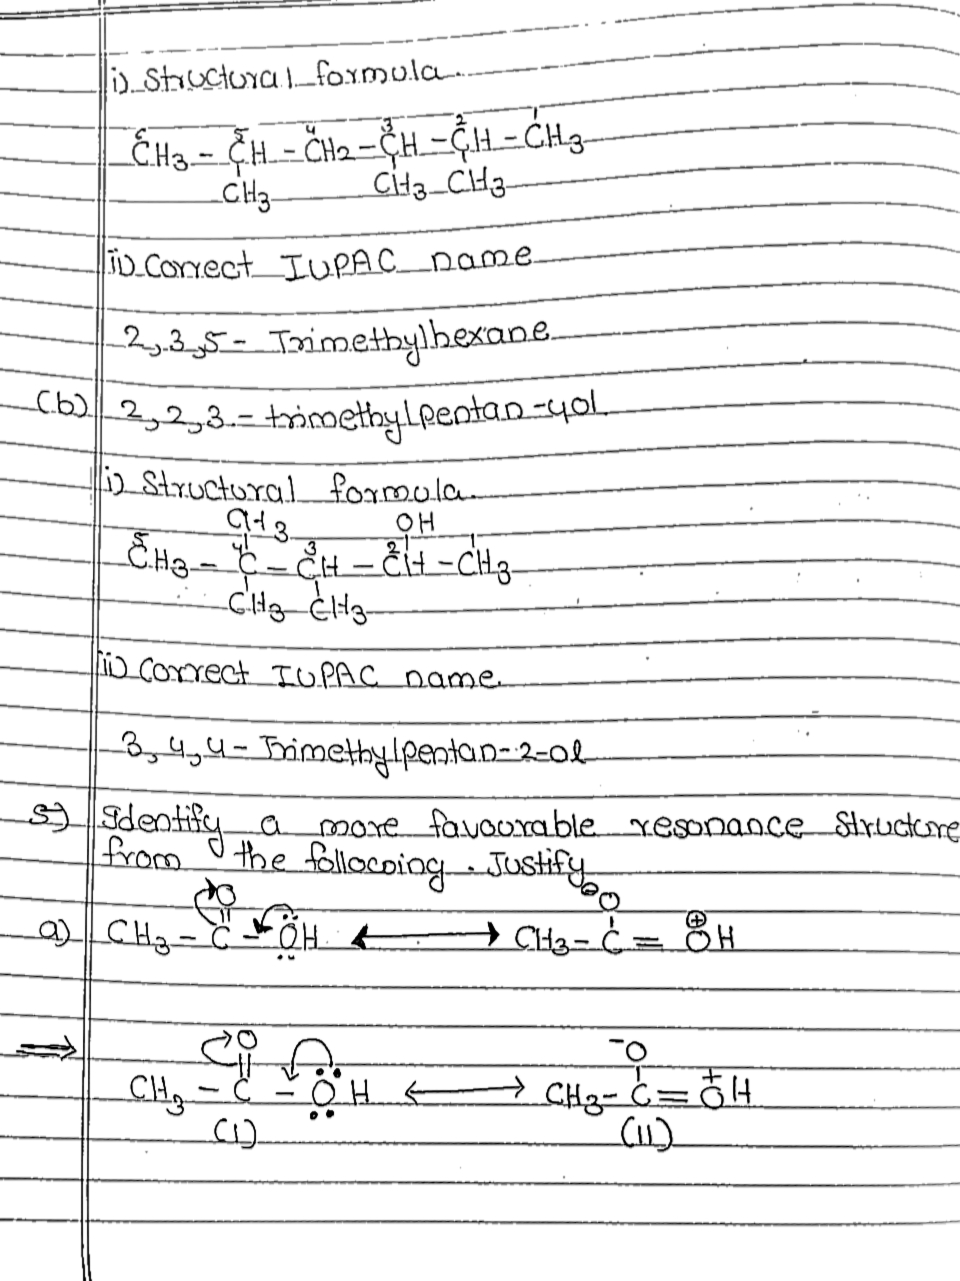 i) Structural formula.
6 5 4 3 2 1
CH3 - CH - CH2 - CH - CH - CH3
CH3 CH3 CH3
ii) Correct IUPAC name
2,3,5- Trimethylhexane
(b) 2,2,3.- trimethylpentan-4ol.
i) Structural formula.
CH3 OH
5 4 3 2 1
CH3 - C - CH - CH - CH3
CH3 CH3
ii) Correct IUPAC name.
3,4,4- Trimethylpentan-2-ol
5) Identify a more favourable resonance structure
from the following. Justify
O ⊖O
a) CH3 - C - ÖH ⟷ CH3 - C = ⊕OH
⇒ O -O
CH3 - C - O H ⟷ CH3 - C = +OH
(I) (II)